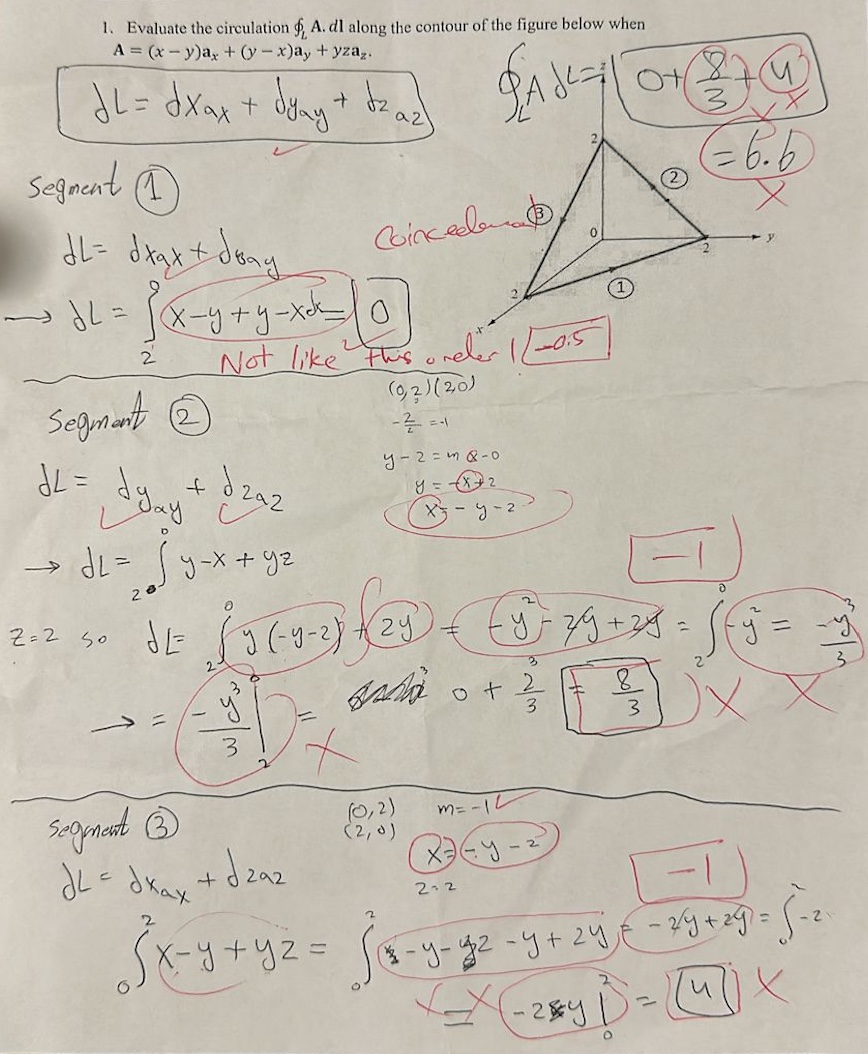 1. Evaluate the circulation ∮L A. dl along the contour of the figure below when
A = (x − y)ax + (y − x)ay + yzaz.
dL = dxax + dyay + dzaz
∮L A dL = 0 + 8/3 + 4
= 6.6
X
2
2
2
0
y
x
1
2
3
Segment 1
dL = dxax + dyay
→ dL = ∫ 2 0 x-y+y-xdx = 0
Not like this order
-0.5
Segment 2
(0,2)(2,0)
-2/2 = -1
y-2 = m x-0
y = -x+2
x = -y-2
dL = dyay + dzaz
→ dL = ∫ 2 0 y-x+yz
-1
z=2 so dL = ∫ 2 0 y(-y-2) + 2y = -y² - 2y + 2y = ∫ 2 0 -y² = -y³/3
→ = -y³/3 | 2 0 = 0 + 2³/3 = 8/3 X X
X
Segment 3
(0,2)
(2,0)
m = -1
x = -y-2
z=2
dL = dxax + dzaz
-1
∫ 0 2 x-y+yz = ∫ 0 2 -y-2-y+2y = -2y+2y = ∫ 0 2 -2
X = X -2y | 0 2 = 4 X